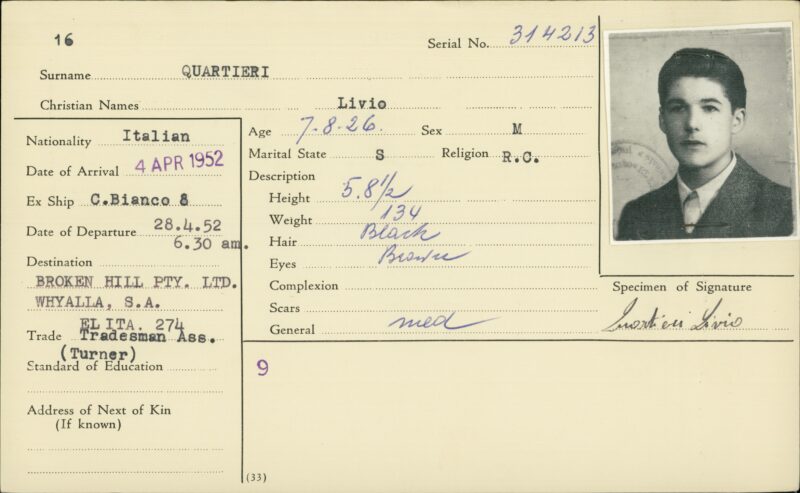 16
Serial No. 314213
Surname QUARTIERI
Christian Names Livio
Nationality Italian
Date of Arrival 4 APR 1952
Ex Ship C.Bianco 8
Date of Departure 28.4.52
6.30 am.
Destination
BROKEN HILL PTY. LTD.
WHYALLA, S.A.
EL ITA. 274
Trade Tradesman Ass.
(Turner)
Standard of Education
Address of Next of Kin
(If known)
Age 7.8.26. Sex M
Marital State S Religion R.C.
Description
Height 5.8½
Weight 134
Hair Black
Eyes Brown
Complexion
Scars
General med
9
(33)
Specimen of Signature
Quartieri Livio